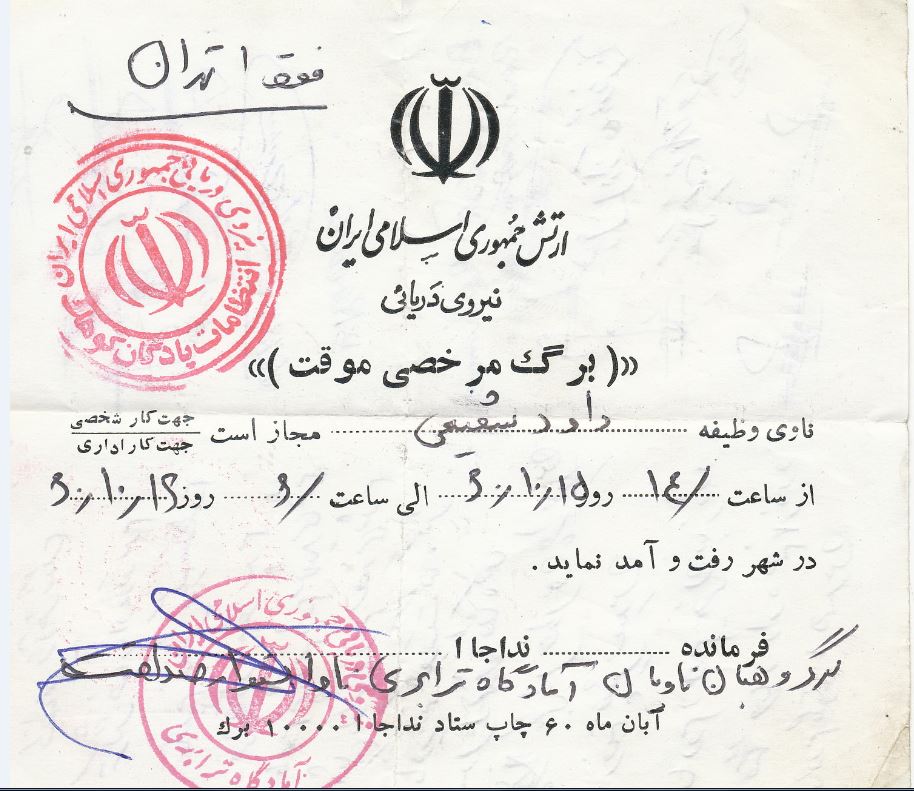 فقط تهران
ارتش جمهوری اسلامی ایران
نیروی دریائی
«( برگ مرخصی موقت )»
ناوی وظیفه داود شفیعی مجاز است جهت کار شخصی
جهت کار اداری
از ساعت /۱۴ روز الی ساعت روز
در شهر رفت و آمد نماید .
فرمانده نداجا ۱
سرگروهبان ناوبان آمادگاه ترابری ناو استوار
آبان ماه ۶۰ چاپ ستاد نداجا ۱ ۱۰۰۰۰ برگ
نیروی دریائی جمهوری اسلامی ایران
انتظامات پادگان کوهک
جمهوری اسلامی ایران
آمادگاه ترابری